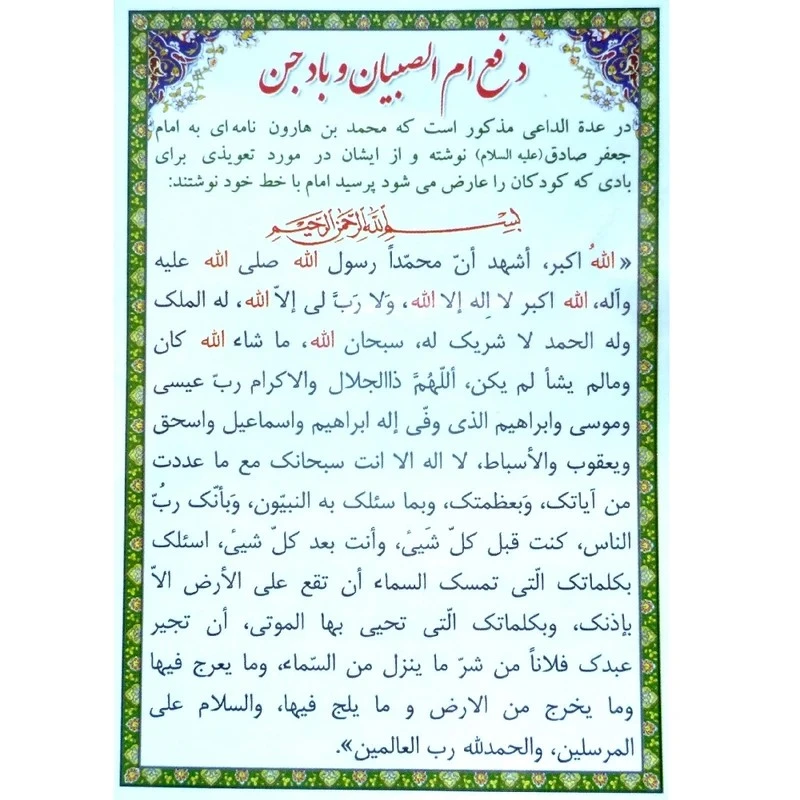 دفع ام الصبیان و باد جن
در عدة الداعی مذکور است که محمد بن هارون نامه‌ای به امام
جعفر صادق(علیه السلام) نوشته و از ایشان در مورد تعویذی برای
بادی که کودکان را عارض می شود پرسید امام با خط خود نوشتند:
بسم الله الرحمن الرحیم
«اللهُ اکبر، أشهد أنّ محمّداً رسول الله صلی الله علیه
وآله، الله اکبر لا اِله إلا الله، وَلا رَبَّ لی إلاّ الله، له الملک
وله الحمد لا شریک له، سبحان الله، ما شاء الله کان
ومالم یشأ لم یکن، أللّهُمَّ ذاالجلال والاکرام ربّ عیسی
وموسی وابراهیم الذی وفّی إله ابراهیم واسماعیل واسحق
ویعقوب والأسباط، لا اله الا انت سبحانک مع ما عددت
من آیاتک، وَبعظمتک، وبما سئلک به النبیّون، وَبأنّک ربُّ
الناس، کنت قبل کلّ شَیئ، وأنت بعد کلّ شیئ، اسئلک
بکلماتک الّتی تمسک السماء أن تقع علی الأرض الاّ
بإذنک، وبکلماتک الّتی تحیی بها الموتی، أن تجیر
عبدک فلاناً من شرّ ما ینزل من السّماء، وما یعرج فیها
وما یخرج من الارض و ما یلج فیها، والسلام علی
المرسلین، والحمدلله رب العالمین».